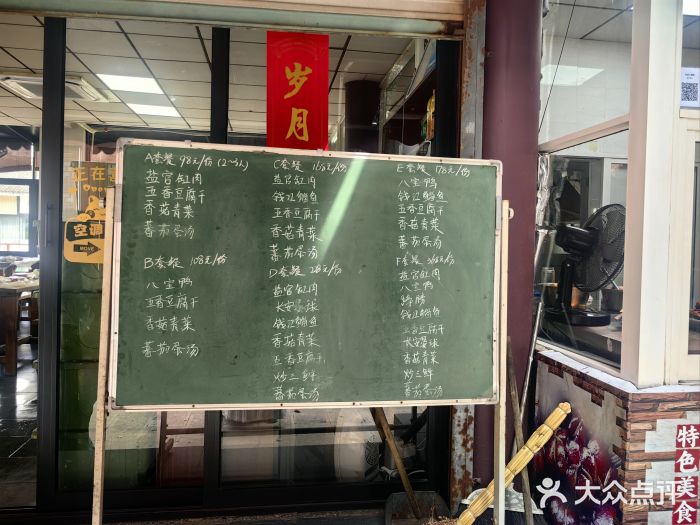 岁月
A套餐 98元/份 (2~3人)
盐官缸肉
五香豆腐干
香菇青菜
蕃茄蛋汤
B套餐 108元/份
八宝鸭
五香豆腐干
香菇青菜
蕃茄蛋汤
C套餐 168元/份
盐官缸肉
钱江鮰鱼
五香豆腐干
香菇青菜
蕃茄蛋汤
D套餐
盐官缸肉
长安宴球
钱江鮰鱼
香菇青菜
五香豆腐干
炒三鲜
蕃茄蛋汤
E套餐 178元/份
八宝鸭
钱江鮰鱼
五香豆腐干
香菇青菜
蕃茄蛋汤
F套餐
盐官缸肉
八宝鸭
钱江鮰鱼
五香豆腐干
长安宴球
香菇青菜
炒三鲜
蕃茄蛋汤
正在
空调
MOVE
特色美食
大众点评